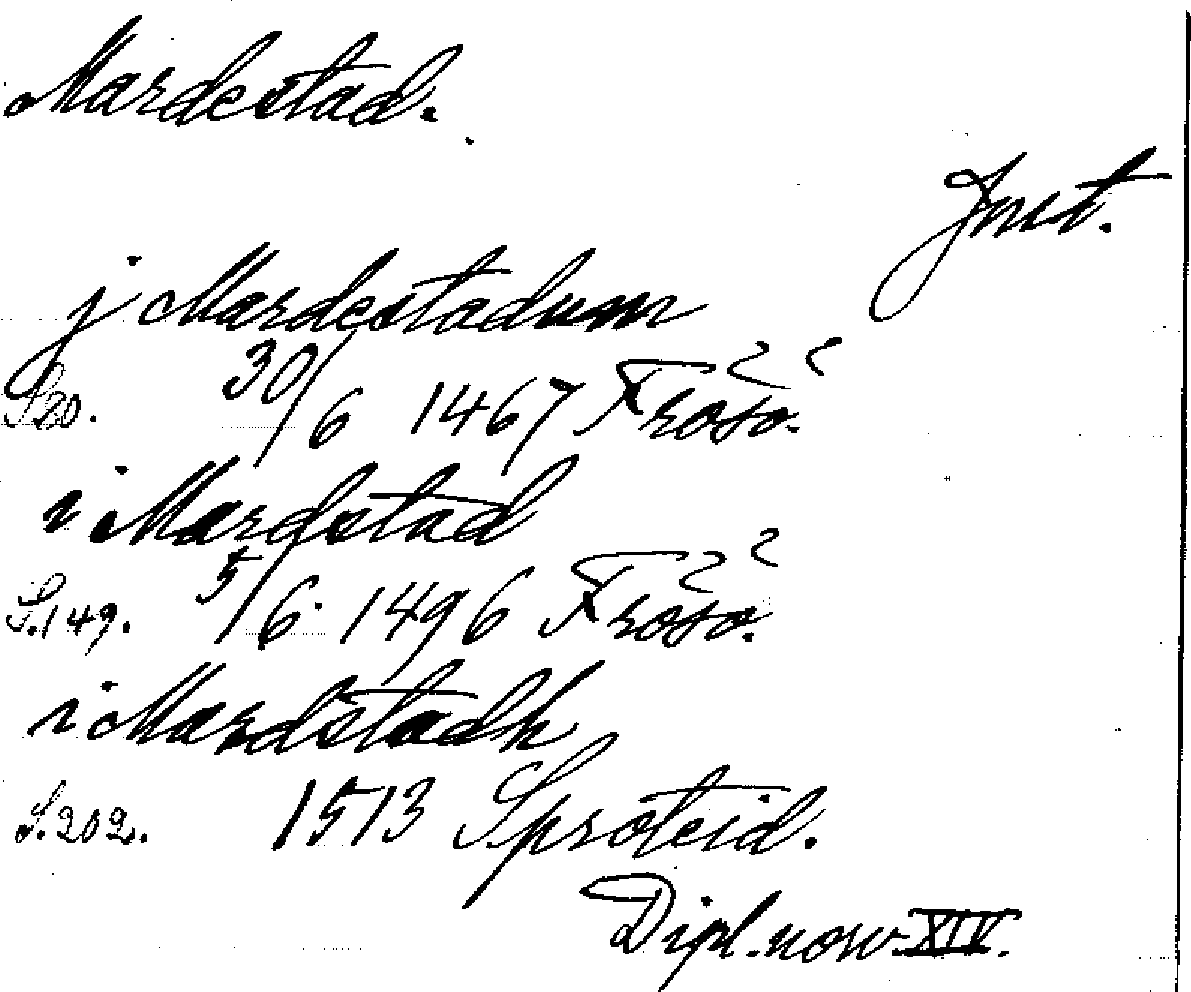 Mardestad.
Jmt.
j Mardestadum
S 20. 30/6 1467 Frösö.
i Mardstad
S. 149. 5/6 1496 Frösö.
i Mardstadh
S. 202. 1513 Sproteid.
Dipl. norv. XIV.